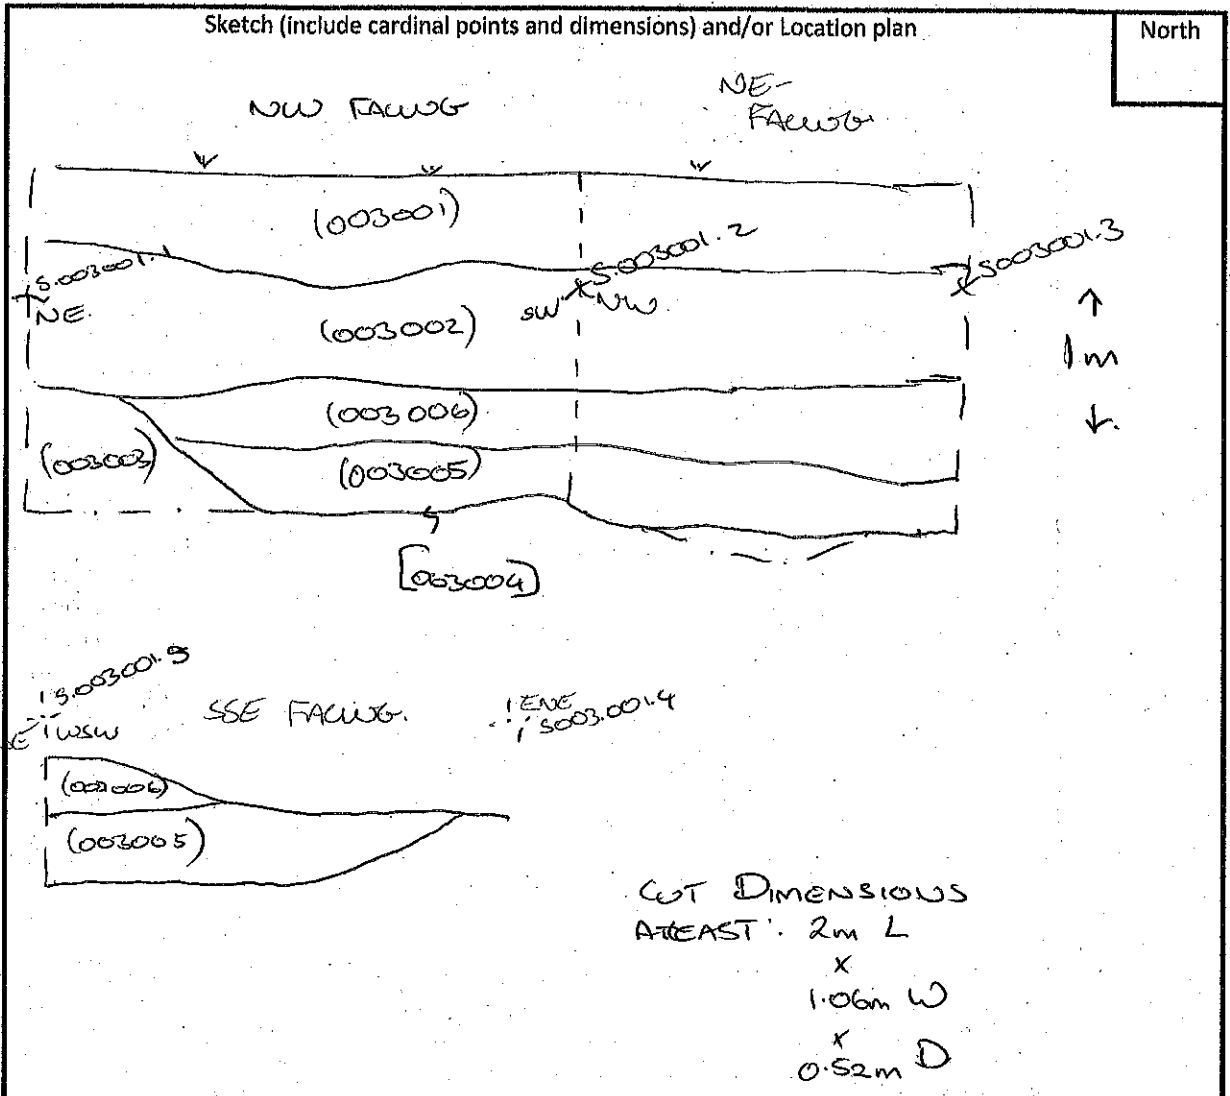 Sketch (include cardinal points and dimensions) and/or Location plan
North
NW FACING
NE-
FACING
(003001)
S.003001.1
S.003001.2
S003001.3
NE.
SW
NW.
(003002)
1m
(003006)
(003003)
(003005)
[003004]
S.003001.9
SSE FACING.
ENE
S003.001.4
WSW
(003006)
(003005)
CUT DIMENSIONS
ATLEAST: 2m L
x
1.06m W
x
0.52m D